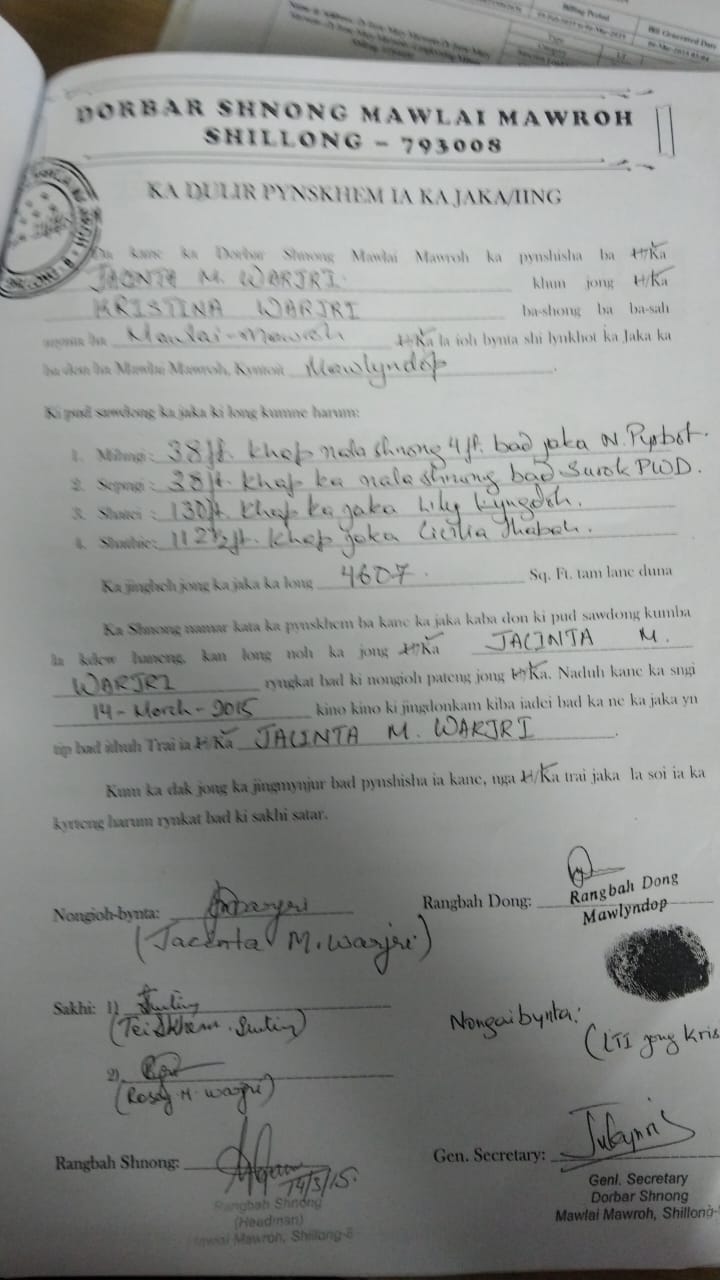 Billing Period
Bill Generated Date
DORBAR SHNONG MAWLAI MAWROH
SHILLONG – 793008
KA DULIR PYNSKHEM IA KA JAKA/IING
kane ka Dorbar Shnong Mawlai Mawroh ka pynshisha ba U/Ka
JACINTA M. WARJRI khun jong U/Ka
KRISTINA WARJRI ba-shong ba ba-sah
Mawlai-Mawroh U/Ka la ioh bynta shi lynkhot ka Jaka ka
ba don ha Mawlai Mawroh, Kyntoit Mawlyndep.
Ki pud sawdong ka jaka ki long kumne harum:
1. Mihngi: 38ft. khap nala shnong 4ft. bad jaka N. Pyrbot.
2. Sepngi: 38ft. khap ka nala shnong bad Surok PWD.
3. Shatei : 130ft. khap ka jaka Lily Lyngdoh.
4. Shathie: 112½ft. khap jaka Cicilia Thabah.
Ka jingheh jong ka jaka ka long 4607. Sq. Ft. tam lane duna
Ka Shnong namar kata ka pynskhem ba kane ka jaka kaba don ki pud sawdong kumba
la kdew haneng, kan long noh ka jong U/Ka JACINTA M.
WARJRI ryngkat bad ki nongioh pateng jong U/Ka. Naduh kane ka sngi
14-March-2015 kino kino ki jingdonkam kiba iadei bad ka ne ka jaka yn
tip bad ithuh Trai ia U/Ka JACINTA M. WARJRI.
Kum ka dak jong ka jingmynjur bad pynshisha ia kane, nga U/Ka trai jaka la soi ia ka
kyrteng harum rynkat bad ki sakhi satar.
Nongioh-bynta: Rangbah Dong:
Rangbah Dong
Mawlyndop
(Jacinta M. Warjri)
Sakhi: 1)
(Teiskhem. Suting)
Nongaibynta:
(LTI jong Kris
2)
(Rosey M. Warjri)
Rangbah Shnong: 14/3/15. Gen. Secretary:
Rangbah Shnong
(Headman)
Mawlai Mawroh, Shillong-8
Genl. Secretary
Dorbar Shnong
Mawlai Mawroh, Shillong-